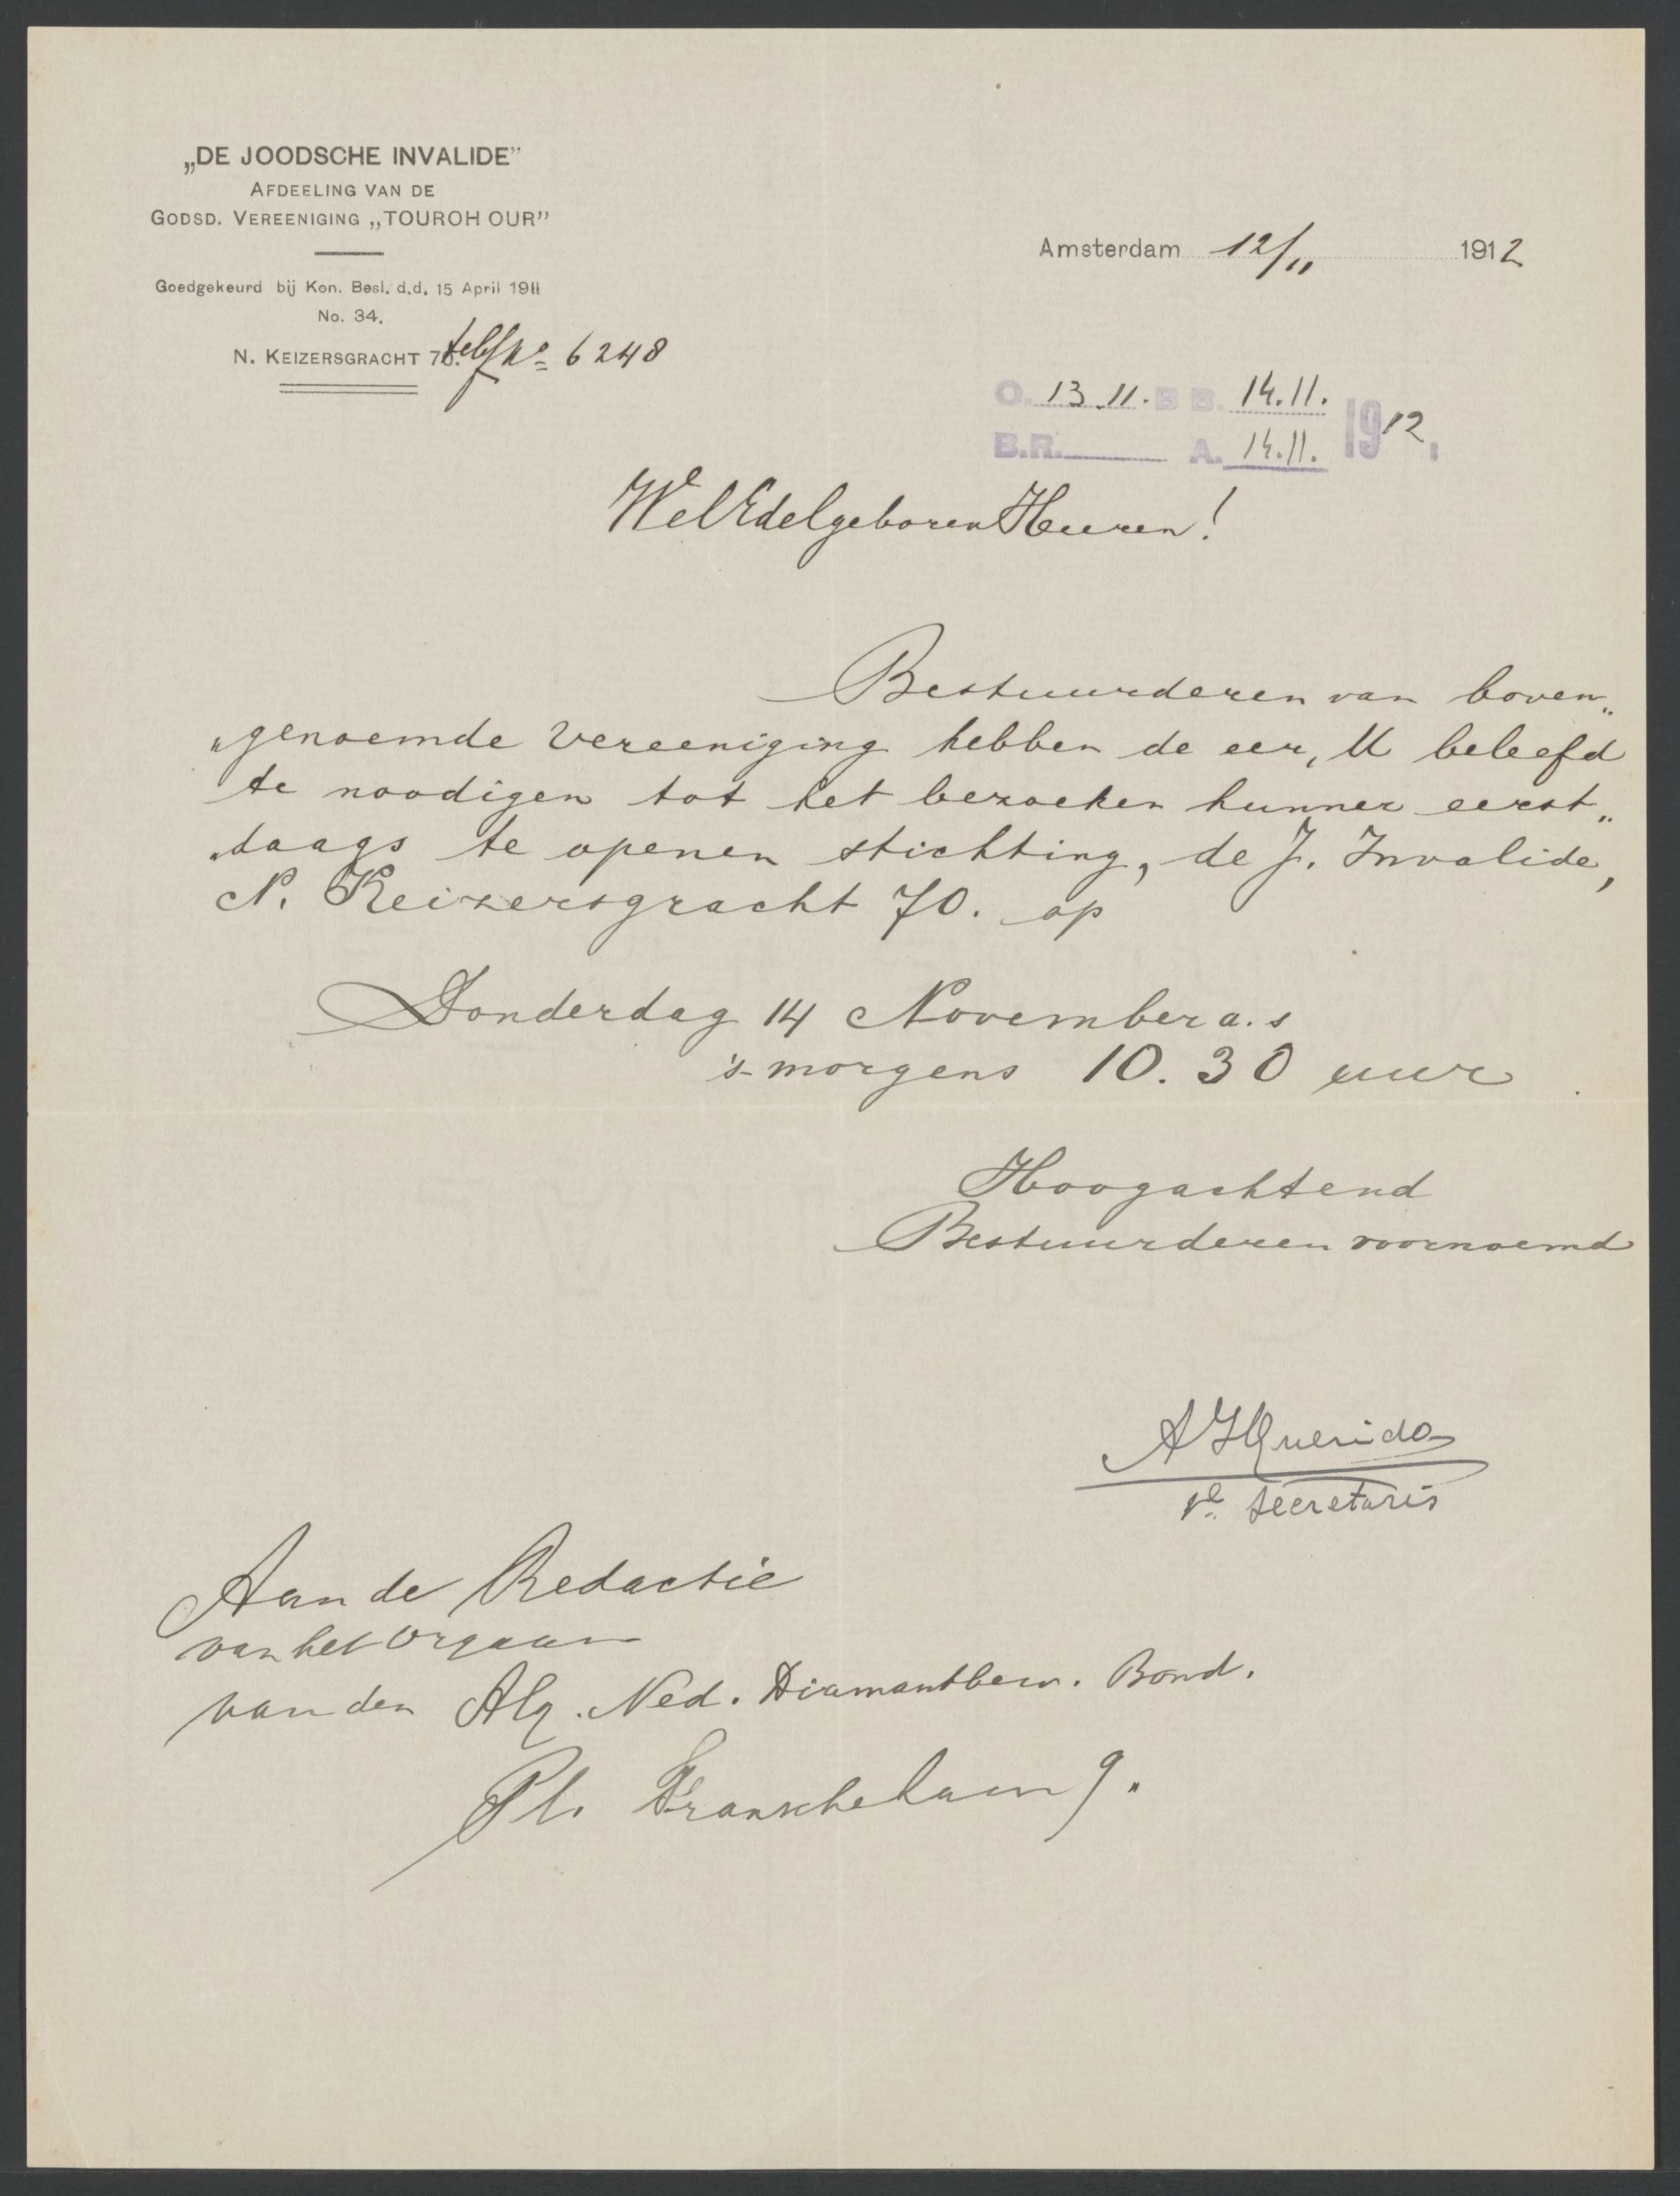 „DE JOODSCHE INVALIDE”
AFDEELING VAN DE
GODSD. VEREENIGING „TOUROH OUR”
Goedgekeurd bij Kon. Besl. d.d. 15 April 1911
No. 34.
N. KEIZERSGRACHT 70. telf No 6248
Amsterdam 12/11 1912
O. 13.11. B B. 14.11.
B.R. A. 14.11. 1912,
WelEdelgeboren Heeren!
Bestuurderen van boven„
„genoemde Vereeniging hebben de eer, U beleefd
te noodigen tot het bezoeken hunner eerst„
„daags te openen stichting, de J. Invalide,
N. Keizersgracht 70. op
Donderdag 14 November a.s
's-morgens 10.30 uur
Hoogachtend
Bestuurderen voornoemd
A Querido
1e Secretaris
Aan de Redactie
van het Orgaan
van den Alg. Ned. Diamantbew. Bond.
Pl. Franschelaan 9.